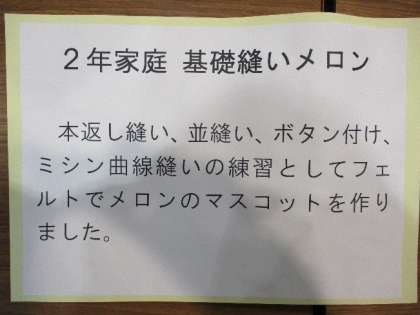 2年家庭 基礎縫いメロン
本返し縫い、並縫い、ボタン付け、
ミシン曲線縫いの練習としてフェ
ルトでメロンのマスコットを作り
ました。